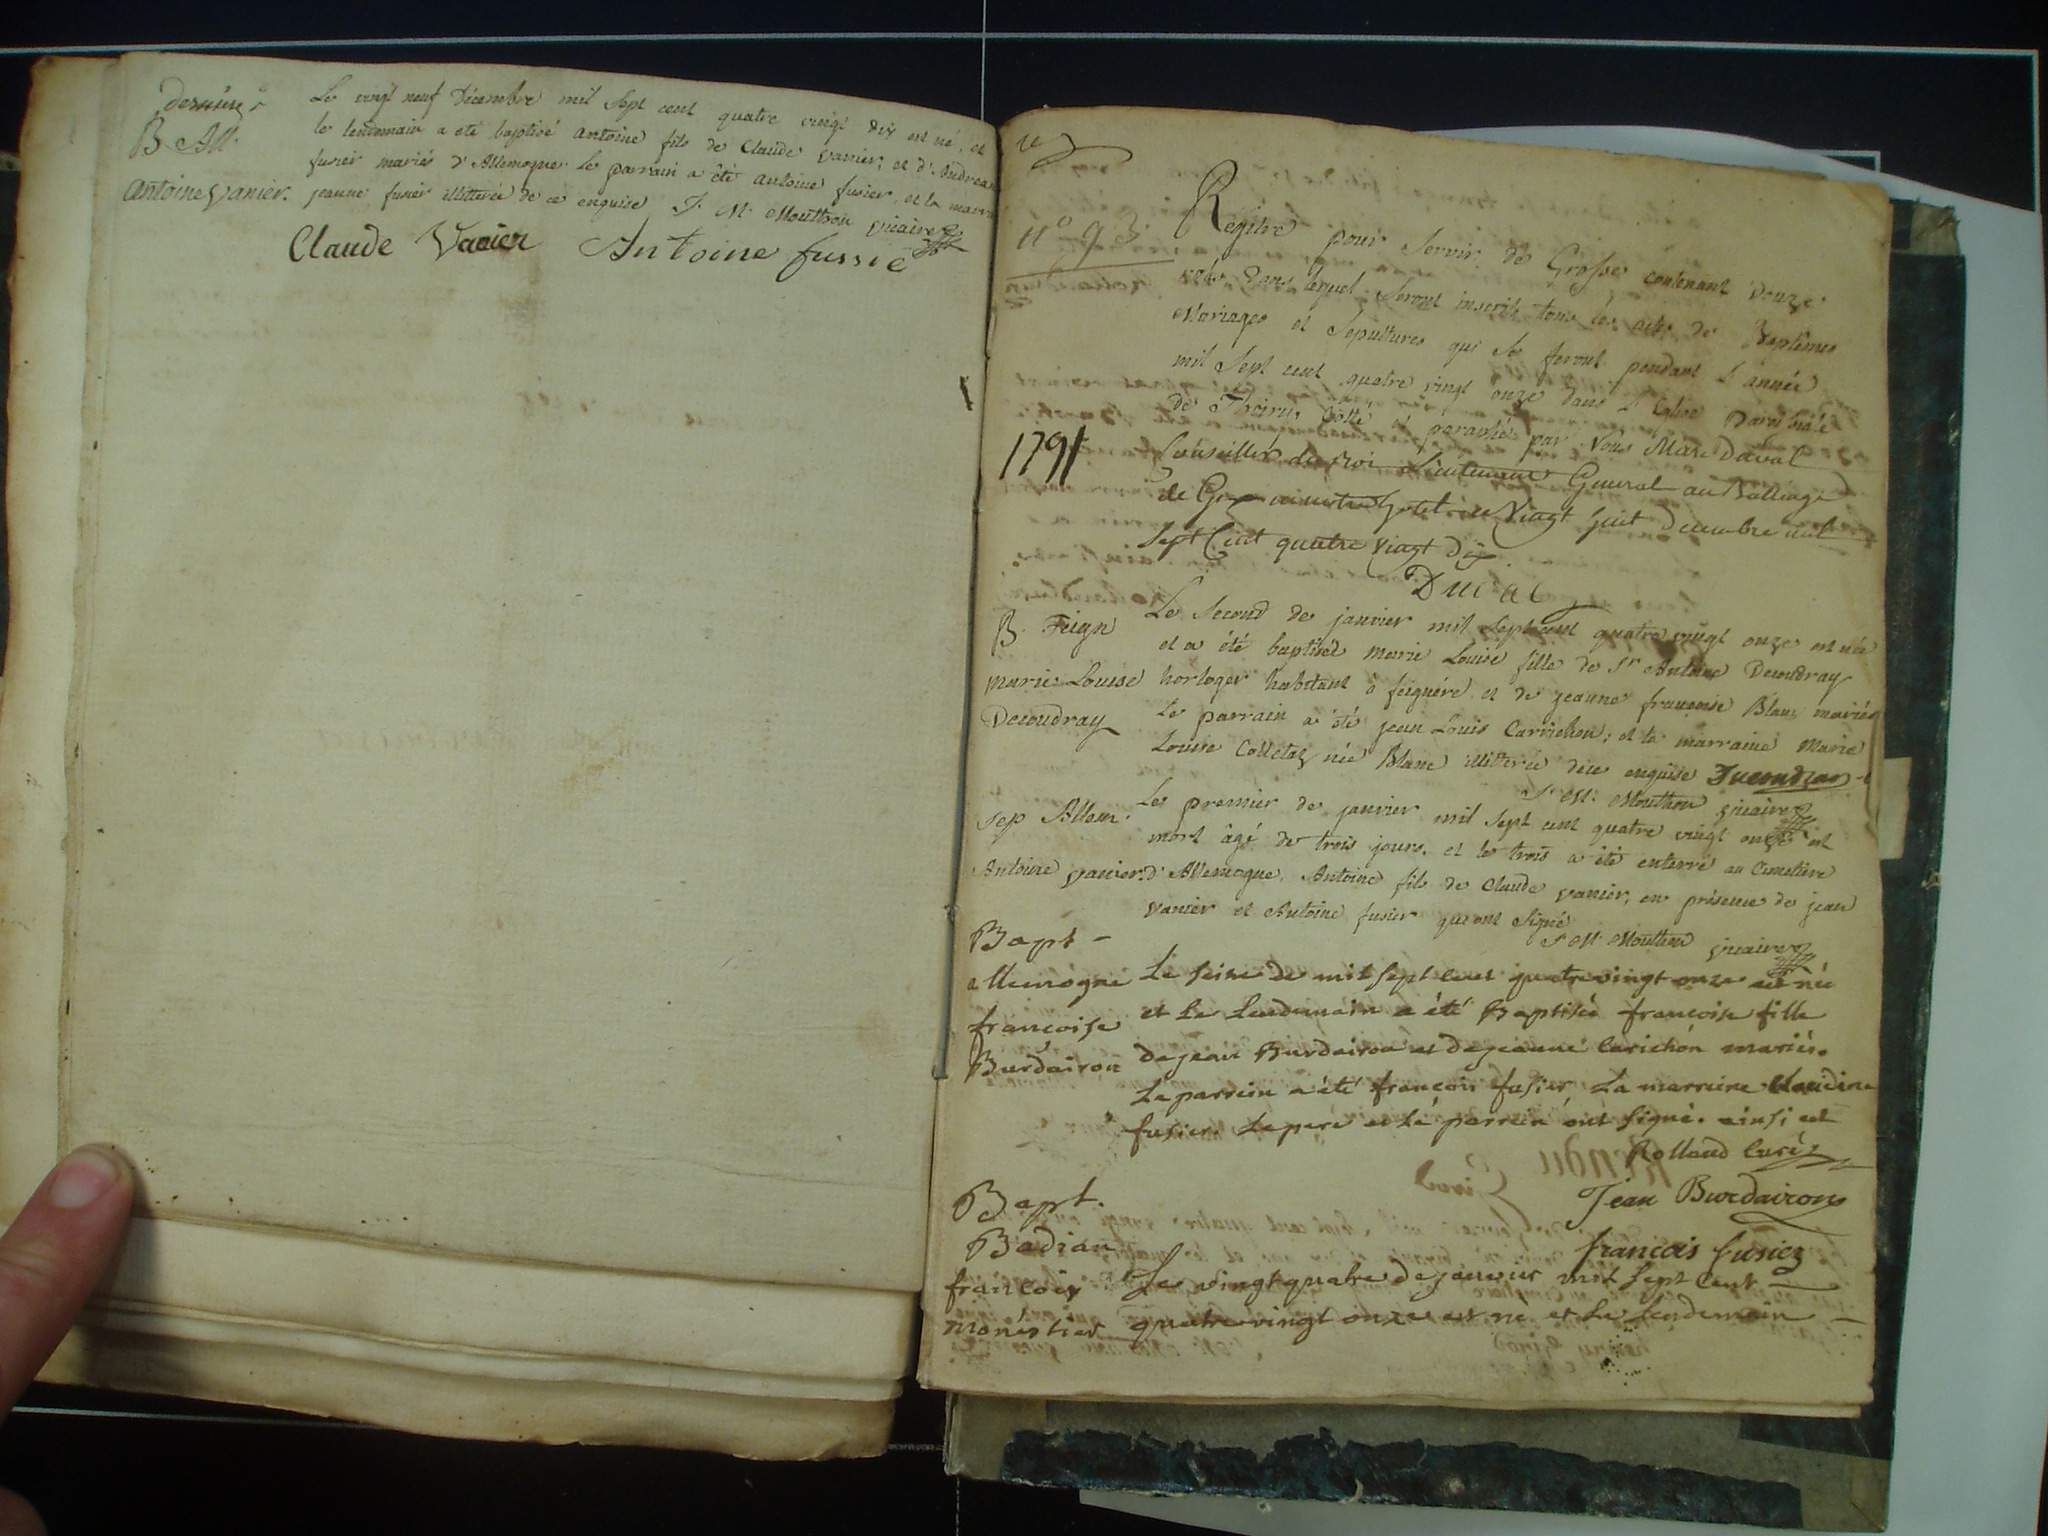 dernière
B. All.
antoine vanier.
Le vingt neuf Décembre mil Sept cent quatre vingt dix est né, et
le lendemain a été baptisé antoine fils de Claude vanier, et d'Andreaz
fusier mariés d'Allemogne le parrain a été antoine fusier, et la marr
jeanne fusier illitterée de ce enquise J. M. Mouthon vicaire
Claude Vanier Antoine fussié
1e
n° 93
Regitre pour servir de Grosse contenant douze
dans lequel seront inscrits tous les actes de Baptêmes
Mariages et Sepultures qui se feront pendant l'année
mil Sept cent quatre vingt onze dans l'Eglise Paroissiale
de Thoiry, Cotté et paraphé par Nous Marc Duval
1791
Conseiller du Roi Lieutenant General au Balliage
de Gex en notre hotel ce Vingt huit Decembre mil
Sept Cent quatre Vingt Dix
Duval
B. Feign
marie Louise
Decoudray
Le Second de janvier mil sept cent quatre vingt onze est née
et a été baptisée marie Louise fille de Sr Antoine Decoudray
horloger habitant à feignére et de jeanne françoise Blanc mariés
Le parrain a été jean Louis Carrichon; et la marraine Marie
Louise Colletaz née Blanc illitterée de ce enquise Ducoudray
J. M. Mouthon vicaire
Sep Allem.
Antoine vanier.
Les premier de janvier mil sept cent quatre vingt onze est
mort âgé de trois jours, et le trois a été enterré au Cimetière
d'Allemogne, Antoine fils de Claude vanier, en présence de jean
vanier et Antoine fusier qui ont Signé
J. M. Mouthon vicaire
Bapt –
allemogne
françoise
Burdairon
Le seize de mil sept cent quatrevingt onze est née
et Le Lendemain a été Baptisée françoise fille
de jean Burdairon et de jeanne Carichon mariés.
Le parrein a été françois fusier, La marreine Claudine
fusier. Le pere et Le parrein ont signé. ainsi est
Rolland Curé
Jean Burdairon
francois fusiez
Bapt.
Badian
françois
monestier
Le vingtquatre de janvier mil sept cent
quatrevingt onze est né et Le Lendemain